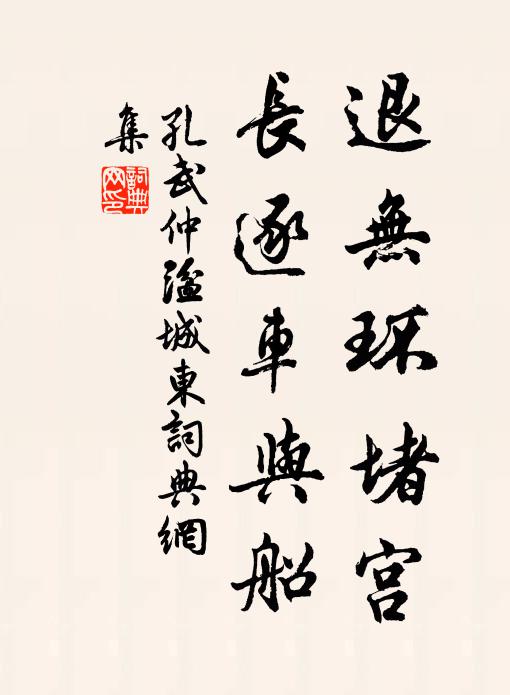 退無環堵宮
長逐車與船
孔武仲湓城東詞典網
集
詞典網印